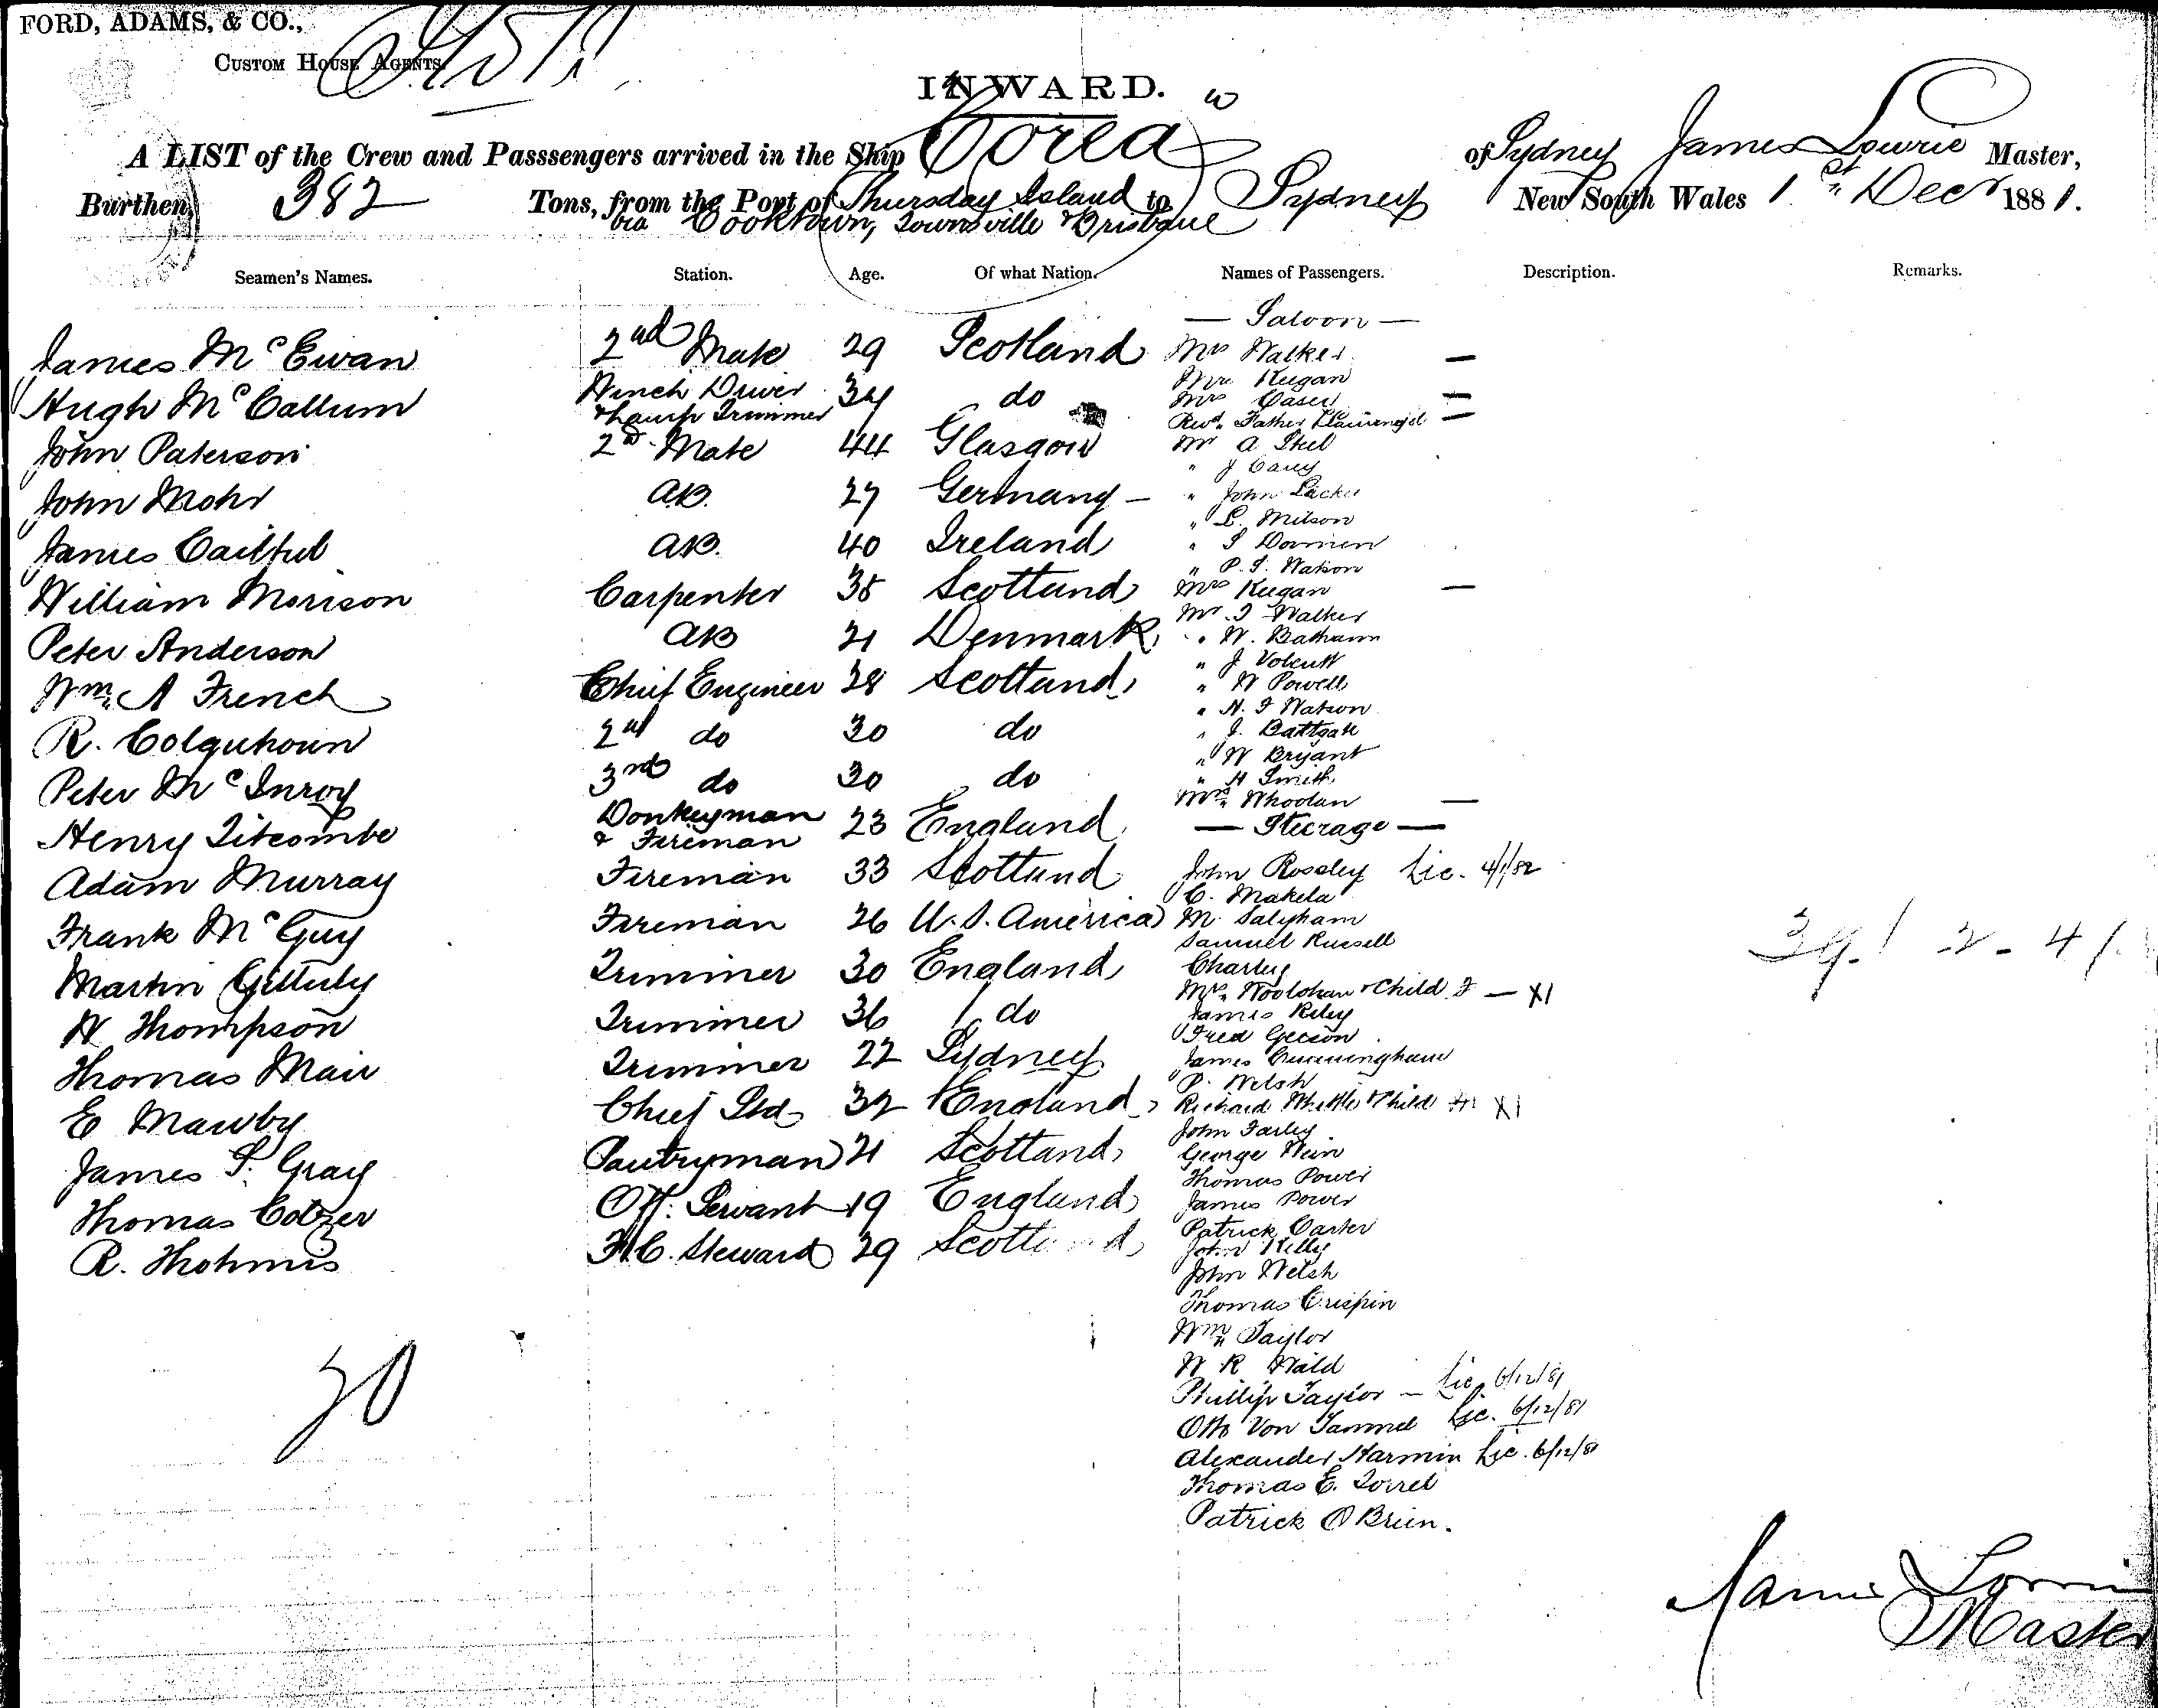 FORD, ADAMS, & CO.,
CUSTOM HOUSE AGENTS.
INWARD.
A LIST of the Crew and Passsengers arrived in the Ship Corea of Sydney James Lowrie Master,
Burthen, 382 Tons, from the Port of Thursday Island to Sydney New South Wales 1st Decr 1881.
via Cooktown, Townsville & Brisbane
Seamen's Names. Station. Age. Of what Nation. Names of Passengers. Description. Remarks.
— Saloon —
James McEwan 2nd Mate 29 Scotland Mrs Walker —
Mr Keegan
Hugh McCallum Winch Driver & Lamp Trimmer 34 do Mrs Casey —
Revd. Father —
John Paterson 2nd Mate 44 Glasgow Mr A Steel
" J Carey
John Mohr AB. 27 Germany — " John
" L. Milson
James AB. 40 Ireland " J
" P. J. Watson
William Morison Carpenter 35 Scotland Mrs Keegan —
Mr. J Walker
Peter Anderson AB 21 Denmark " W.
" J
Wm. A French Chief Engineer 28 Scotland " W Powell
" H. J Watson
R. Colquhoun 2nd do 30 do " J.
" W Bryant
Peter McInroy 3rd do 30 do " H Smith
Mrs. Whoolan —
Henry Titcombe Donkeyman & Fireman 23 England — Steerage —
Adam Murray Fireman 33 Scotland John Rossley Lic. 4/1/82
C. Makela
Frank McGuy Fireman 26 U.S. America M. Salyham
Samuel Russell
39. 2 - 41.
Martin Trimmer 30 England Charley
Mrs. Woolohan & Child F — X1
W Thompson Trimmer 36 do James Riley
Fred Geeson
Thomas Mair Trimmer 22 Sydney James Cunningham
P. Welsh
E Mawby Chief Std 32 England Richard & Child M X1
John Farley
James S. Gray Pantryman 21 Scotland George
Thomas Power
Thomas Cotzer Off. Servant 19 England James Power
Patrick Carter
R. F.C. Steward 29 Scotland John Kelly
John Welsh
Thomas Crispin
Wm. Taylor
20
W R Wald
Phillip Taylor — Lic. 6/12/81
Otto Von Tammel Lic. 6/12/81
Alexander Harmin Lic. 6/12/81
Thomas E. Torrel
Patrick O Brien.
James Lowrie
Master